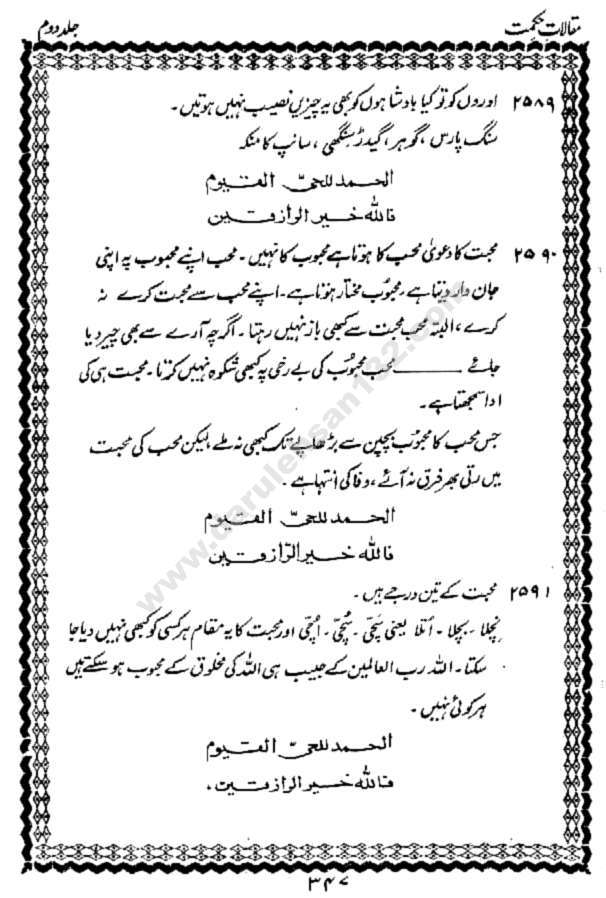 مقالاتِ حکمت
جلد دوم
۲۵۸۹ اوروں کو تو کیا بادشاہوں کو بھی یہ چیزیں نصیب نہیں ہوتیں۔
سنگ پارس، گوہر، گیدڑ سنگھی، سانپ کا منکہ
الحمد للحیّ القیوم
فاللہ خیر الرازقین
۲۵۹۰ محبت کا دعویٰ محب کا ہوتا ہے محبوب کا نہیں۔ محب اپنے محبوب پہ اپنی
جان وار دیتا ہے، محبوب مختار ہوتا ہے۔ اپنے محب سے محبت کرے نہ
کرے، البتہ محب محبت سے کبھی باز نہیں رہتا۔ اگرچہ آرے سے بھی چیر دیا
جائے ـــــــــ محب محبوب کی بے رخی پہ کبھی شکوہ نہیں کرتا۔ محبت ہی کی
ادا سمجھتا ہے۔
جس محب کا محبوب بچپن سے بڑھاپے تک کبھی نہ ملے، لیکن محب کی محبت
میں رتی بھر فرق نہ آئے، وفا کی انتہا ہے۔
الحمد للحیّ القیوم
فاللہ خیر الرّازقین
۲۵۹۱ محبت کے تین درجے ہیں۔
نچلا۔ بچلا۔ اُتلا یعنی سچّی۔ سُچّی۔ اُچّی اور محبت کا یہ مقام ہر کسی کو کبھی نہیں دیا جا
سکتا۔ اللہ رب العالمین کے حبیب ہی اللہ کی مخلوق کے محبوب ہو سکتے ہیں
ہر کوئی نہیں۔
الحمد للحیّ القیوم
فاللہ خیر الرازقین،
۳۴۷
www.darulehsan132.com